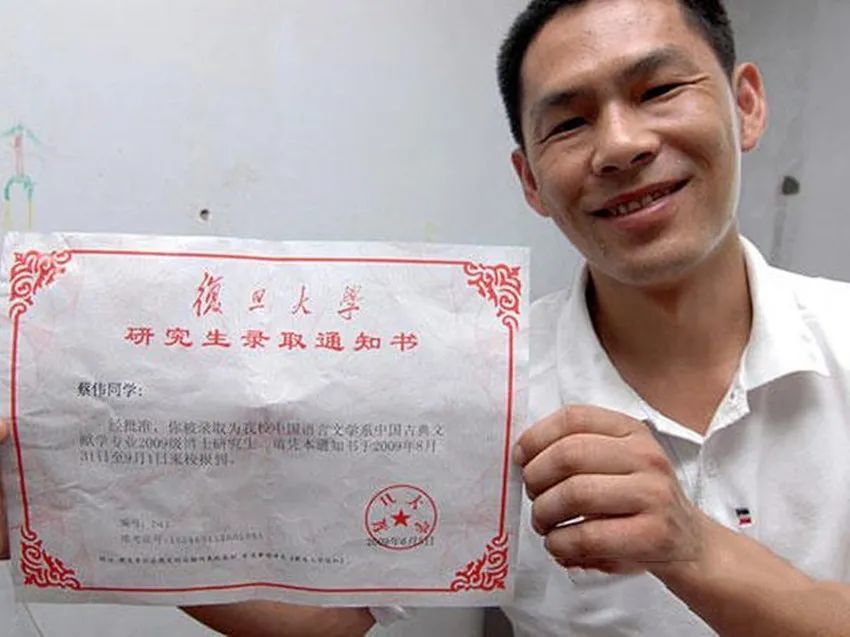 復旦大學
研究生录取通知书
蔡伟同学:
经批准，你被录取为我校中国语言文学系中国古典文
献学专业2009级博士研究生，请凭本通知书于2009年8月
31日至9月1日来校报到。
编号:
准考证号:
复旦大学
2009年6月8日